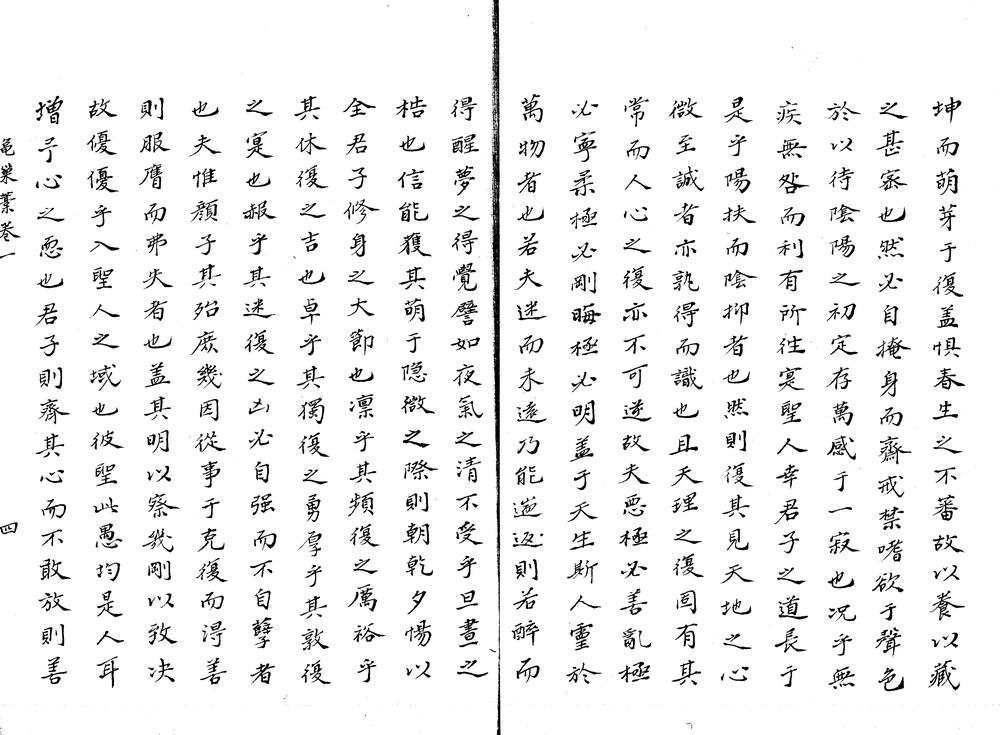 坤而萌芽于復盖惧春生之不蕃故以養以藏
之甚宻也然必自掩身而齋戒禁嗜欲于聲色
於以待陰陽之初定存萬感于一寂也况乎無
疾無咎而利有所徃寔聖人幸君子之道長于
是乎陽扶而陰抑者也然則復其見天地之心
微至誠者亦孰得而識也且天理之復固有其
常而人心之復亦不可逆故夫惡極必善亂極
必寧柔極必剛晦極必明盖于天生斯人靈於
萬物者也若夫迷而未逺乃能遄返則若醉而
得醒夢之得覺譬如夜氣之清不受乎旦晝之
梏也信能獲其萌于隐微之際則朝乾夕惕以
全君子修身之大節也凛乎其頻復之厲裕乎
其休復之吉也卓乎其獨復之勇厚乎其敦復
之寔也赧乎其迷復之凶必自强而不自孽者
也夫惟顔子其殆庶幾因從事于克復而淂善
則服膺而弗失者也盖其明以察幾剛以致决
故優優乎入聖人之域也彼聖此愚均是人耳
增予心之恧也君子則齋其心而不敢放則善
龜巢藁卷一
四